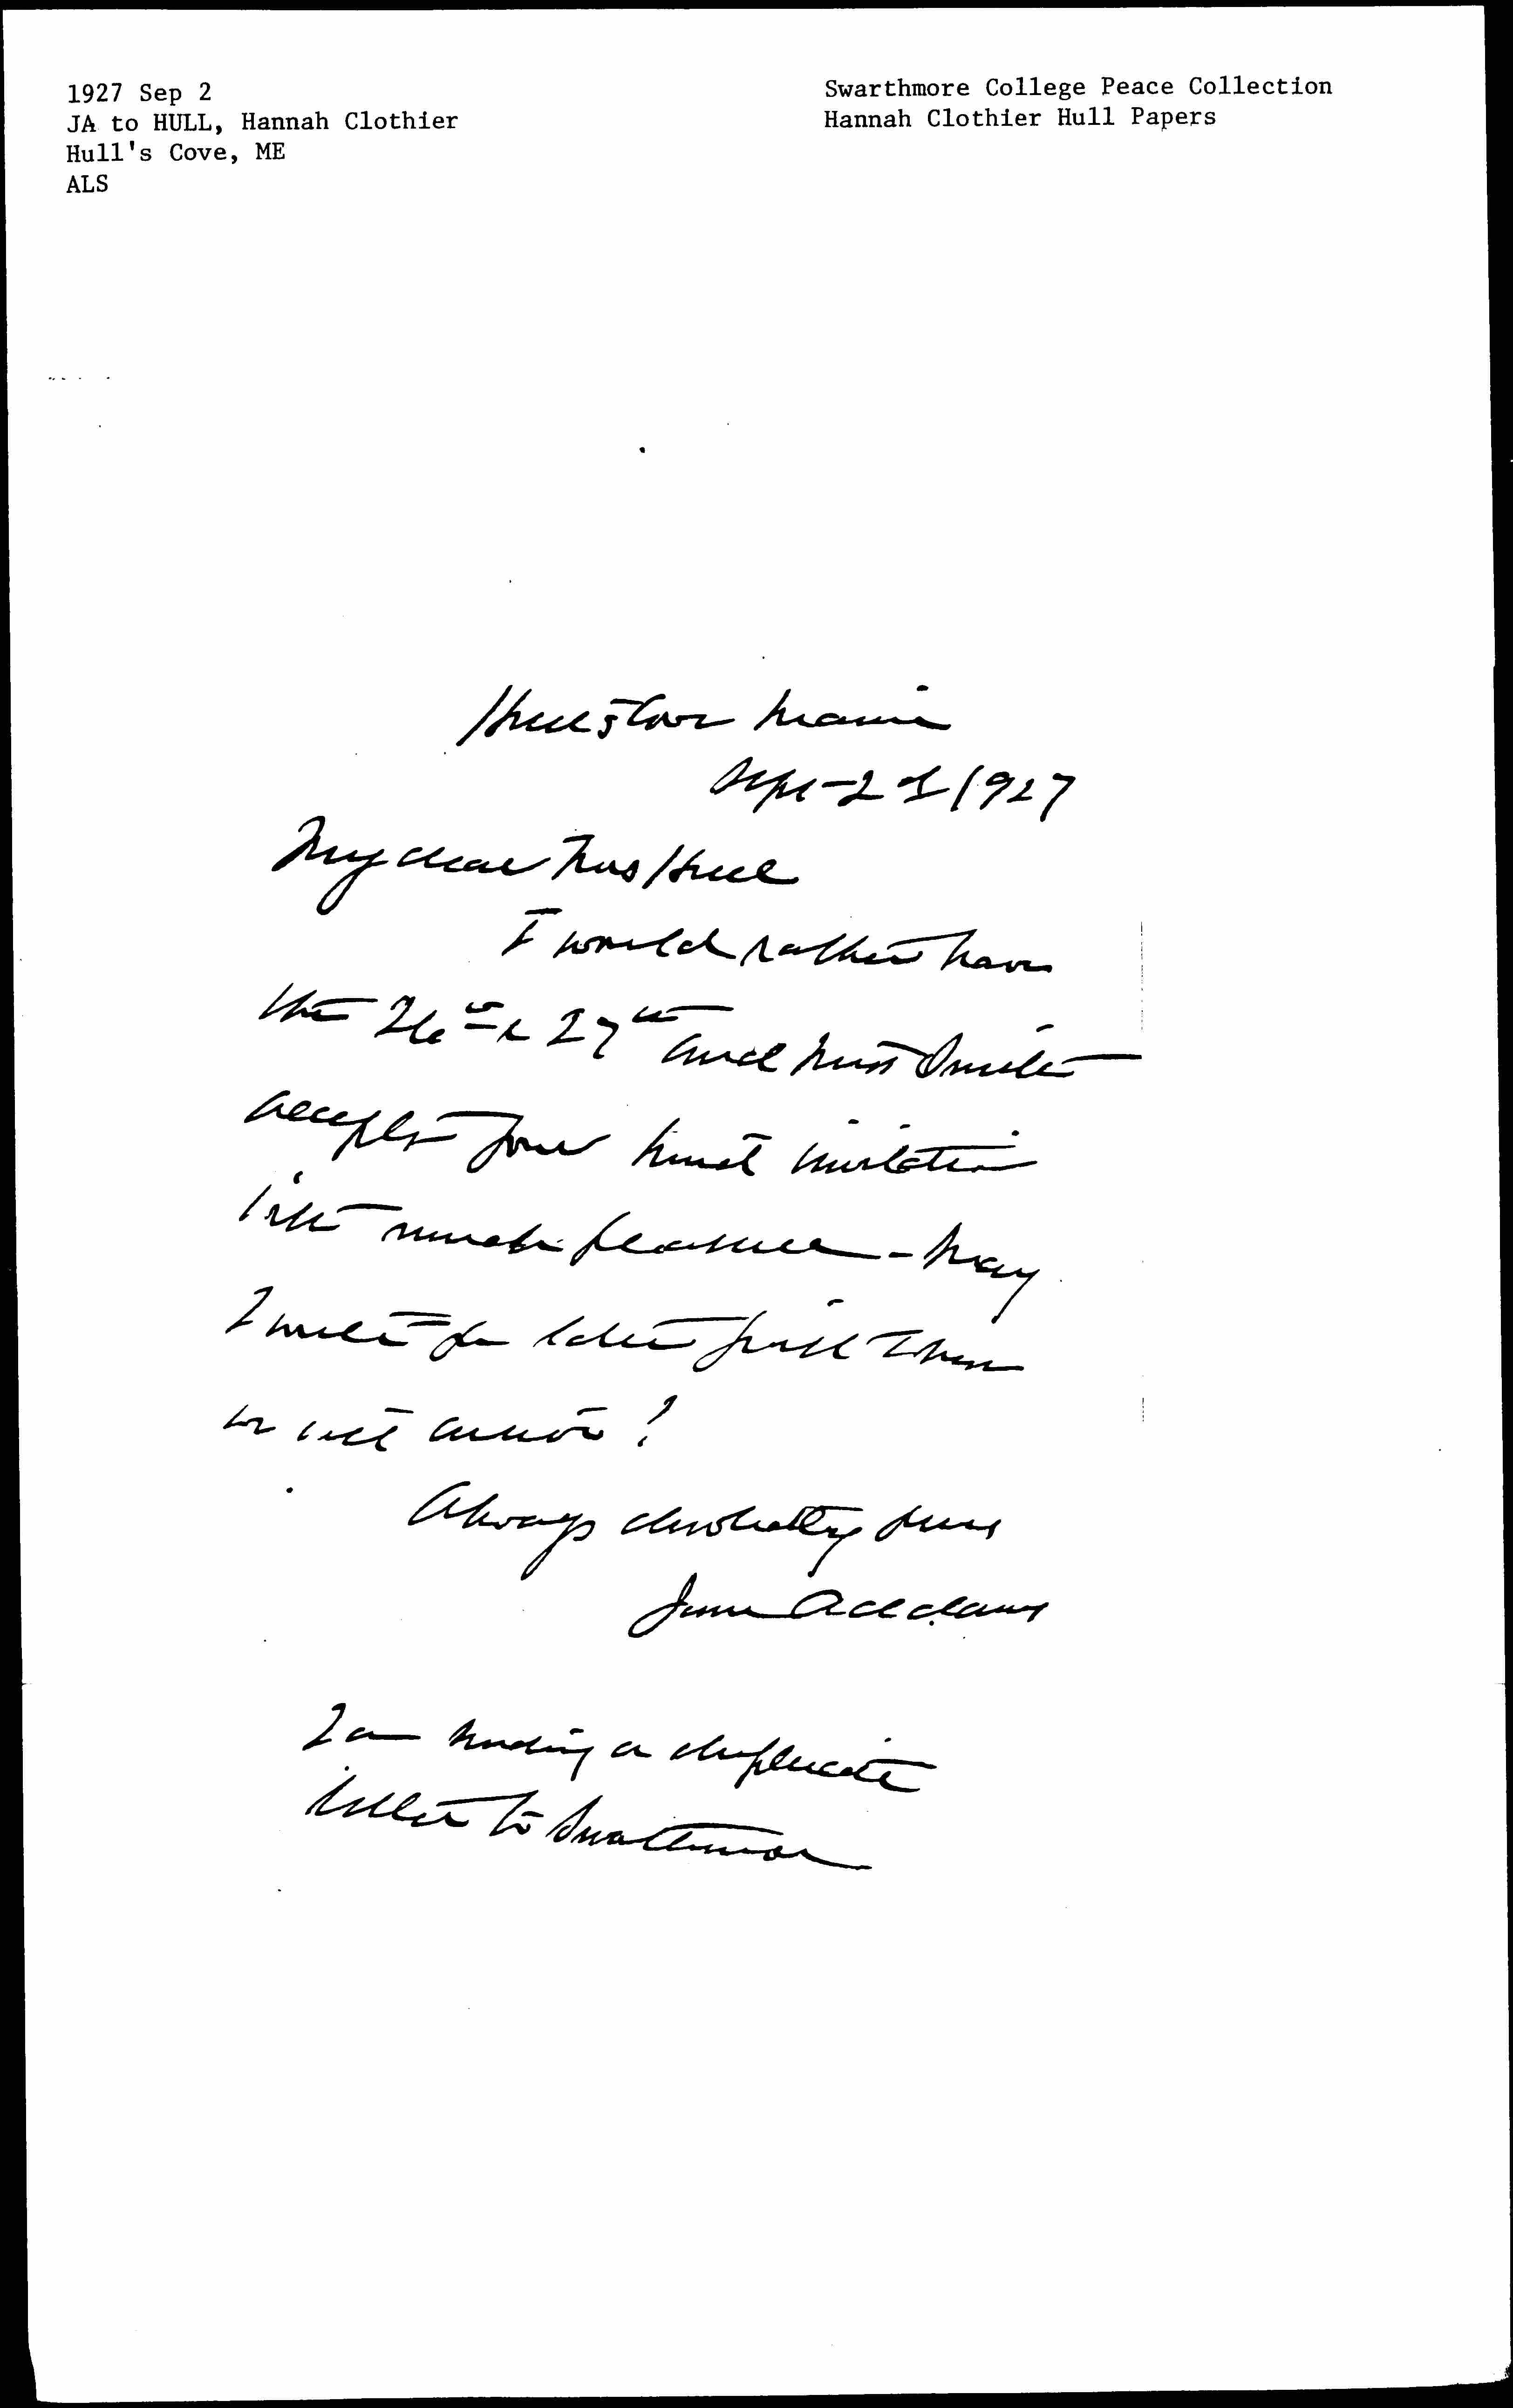 1927 Sep 2
JA to HULL, Hannah Clothier
Hull's Cove, ME
ALS
Swarthmore College Peace Collection
Hannah Clothier Hull Papers
Hulls Cove Maine
Sept 2d 1927
My dear Mrs Hull
I would rather have
the 26th & 27th and Miss Smith
accepts your kind invitation
with much pleasure - May
I write you later just when
we will arrive?
Always devotedly yours
Jane Addams
I am sending a duplicate
letter to Swarthmore